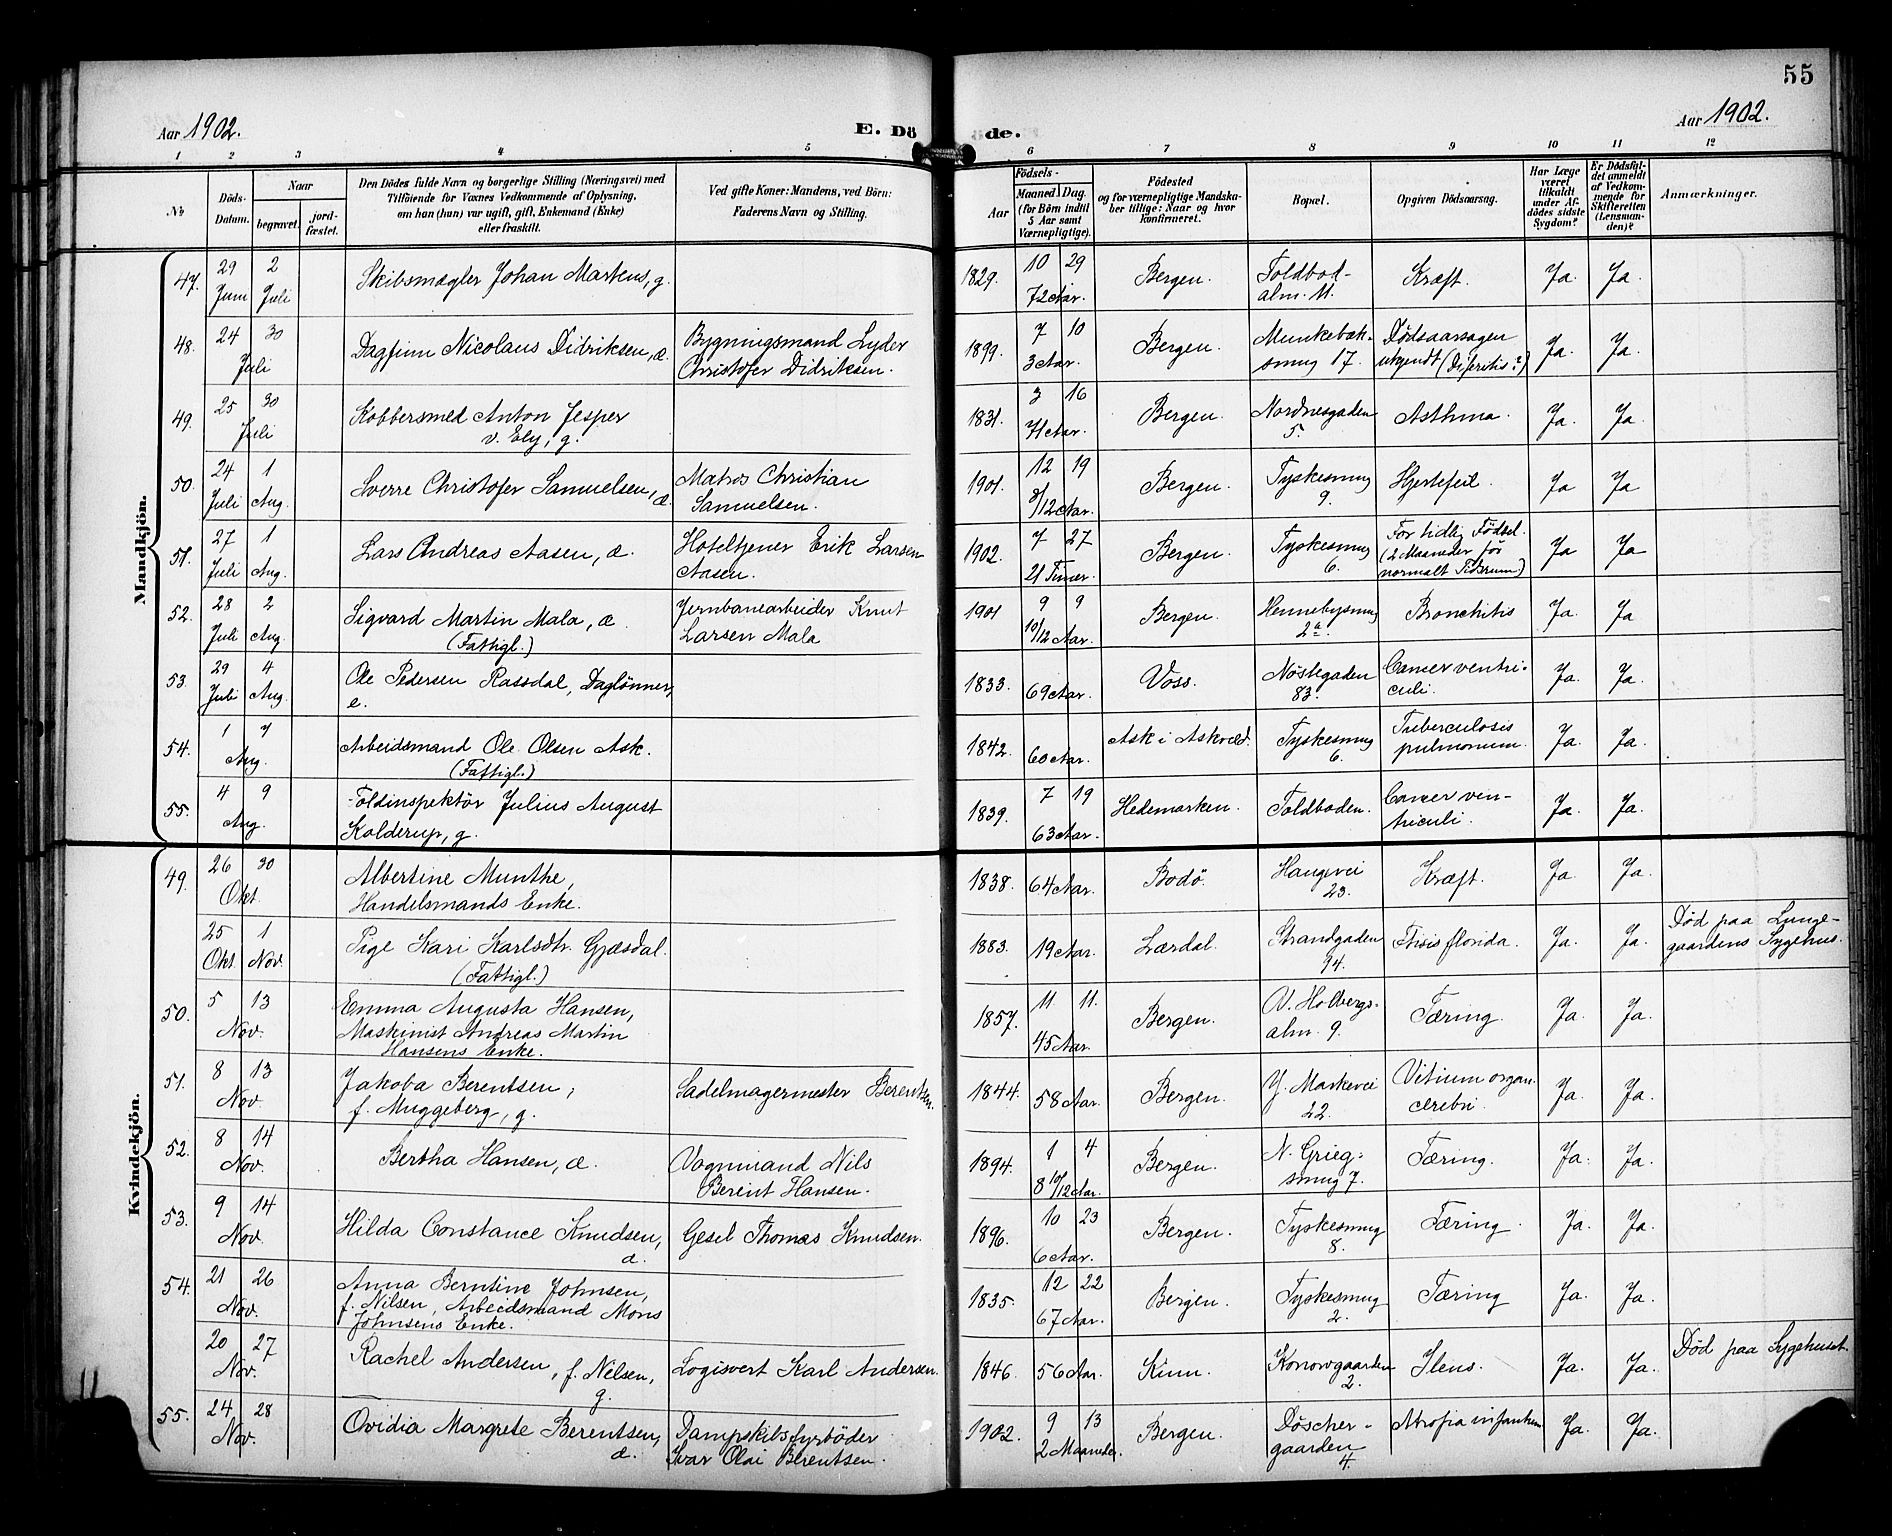 55
Aar 1902.
E. Dö
de.
Aar 1902.
1 2 3 4 5 6 7 8 9 10 11 12
No
Döds-
Datum.
Naar
begravet.
jord-
fæstet.
Den Dödes fulde Navn og borgerlige Stilling (Næringsvei) med
Tilföiende for Voxnes Vedkommende af Oplysning,
om han (hun) var ugift, gift, Enkemand (Enke)
eller fraskilt.
Ved gifte Koner: Mandens, ved Börn:
Faderens Navn og Stilling.
Födsels-
Aar
Maaned Dag.
(for Börn indtil
5 Aar samt
Værnepligtige).
Födested
og for værnepligtige Mandska-
ber tillige: Naar og hvor
konfirmeret.
Bopæl.
Opgiven Dödsaarsag.
Har Læge
været
tilkaldt
under Af-
dödes sidste
Sygdom?
Er Dödsfal-
det anmeldt
af Vedkom-
mende for
Skifteretten
(Lensman-
den)?
Anmærkninger.
Mandkjön.
47. 29 2 Skibsmægler Johan Martens, g. 1829. 10 29 Bergen. Toldbod- Kræft. Ja. Ja.
Juni Juli 72 Aar. alm. 11.
48. 24 30 Dagfinn Nicolaus Didriksen, æ. Bygningsmand Lyder 1899. 7 10 Bergen. Munkebæk- Dødsaarsagen Ja. Ja.
Juli Christofer Didriksen. 3 Aar. smug 17. ukjendt (Difteritis?)
49. 25 30 Kobbersmed Anton Jesper 1831. 3 16 Bergen. Nordnesgaden Asthma. Ja. Ja.
Juli v. Ely, g. 71 Aar. 5.
50. 24 1 Sverre Christofer Samuelsen, æ. Matros Christian 1901. 12 19 Bergen. Tyskesmug Hjertefeil. Ja Ja
Juli Aug. Samuelsen. 8/12 Aar. 9.
51. 27 1 Lars Andreas Aasen, æ. Hoteltjener Erik Larsen 1902. 7 27 Bergen. Tyskesmug For tidlig Fødsel. Ja Ja
Juli Aug. Aasen. 21 Timer. 6. (2 Maaneder før
normalt Tidsrum.)
52. 28 2 Sigvard Martin Mala, æ. Jernbanearbeider Knut 1901 9 9 Bergen. Hennebysmug Bronchitis Ja. Ja
Juli Aug. (Fattigl.) Larsen Mala 10/12 Aar. 2a.
53. 29 4 Ole Pedersen Rassdal, Daglønner, 1833. 69 Aar. Voss. Nøstegaden Cancer ventri- Ja. Ja.
Juli Aug. e. 83. culi.
54. 1 7 Arbeidsmand Ole Olsen Ask. 1842. 60 Aar. Ask i Askvold. Tyskesmug Tuberculosis Ja. Ja.
Aug. (Fattigl.) 6. pulmonum.
55. 4 9 Toldinspektör Julius August 1839. 7 19 Hedemarken. Toldboden. Cancer ven- Ja. Ja.
Aug. Kolderup, g. 63 Aar. triculi.
Kvindekjön.
49. 26 30 Albertine Munthe, 1838. 64 Aar. Bodö. Haugevei Kræft. Ja. Ja.
Okt. Handelsmands Enke. 23.
25 1 Pige Kari Karlsdtr. Gjæsdal. 1883. 19 Aar. Lærdal. Strandgaden Ftisis florida. Ja. Ja. Død paa Lunge-
Okt. Nov. (Fattigl.) 94. gaardens Sygehus.
50. 5 13 Emma Augusta Hansen, 1857. 11 11. Bergen. V. Holbergs- Tæring. Ja. Ja.
Nov. Maskinist Andreas Martin 45 Aar. alm. 9.
Hansens Enke.
51. 8 13 Jakoba Berentsen, Sadelmagermester Berentsen. 1844. 58 Aar. Bergen. Y. Markevei Vitium organ. Ja. Ja.
Nov. f. Muggeberg, g. 22. cerebri.
52. 8 14 Bertha Hansen, æ. Vognmand Nils 1894. 1 4 Bergen. N. Grieg- Tæring. Ja. Ja.
Nov. Berent Hansen. 8 10/12 Aar. smug 7.
53. 9 14 Hilda Constance Knudsen, Gesel Thomas Knudsen. 1896. 10 23 Bergen. Tyskesmug Tæring. Ja. Ja.
Nov. æ. 6 Aar. 8.
54. 21 26 Anna Berntine Johnsen, 1835. 12 22 Bergen. Tyskesmug Tæring Ja. Ja.
Nov. f. Nilsen, Arbeidsmand Mons 67 Aar. 2.
Johnsens Enke.
20 27 Rachel Andersen, f. Nilsen, Logisvert Karl Andersen. 1846. 56 Aar. Kinn. Konowgaarden Ilens. Ja. Ja. Død paa Sygehuset.
Nov. g. 2.
55. 24 28 Ovidia Margrete Berentsen, Dampskibsfyrbøder 1902. 9 13 Bergen. Døscher- Atrofia infantum Ja. Ja.
Nov. æ. Ivar Olai Berentsen. 2 Maaneder. gaarden
4.